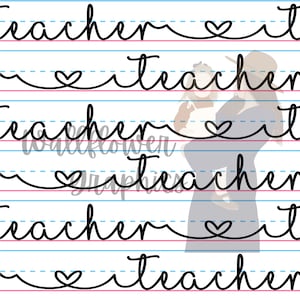 teacher t
teacher
teacher t
wallflower
teacher
graphics
teacher t
teacher